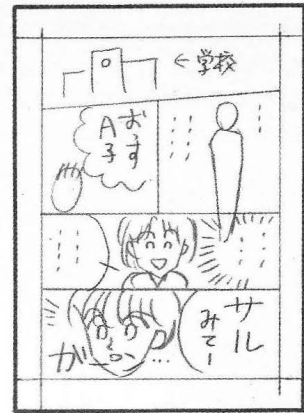 ←学校
おっす
A子
サル
みてー
…
が